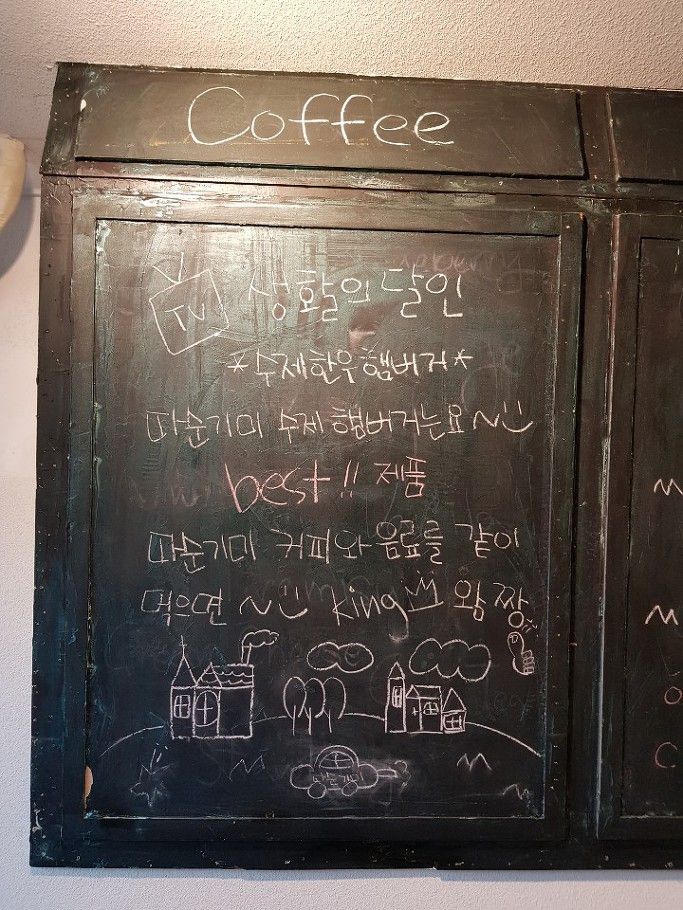 Coffee
TV 생활의 달인
*수제한우햄버거*
따순기미 수제 햄버거는요~
best!! 제품
따순기미 커피와 음료를 같이
먹으면 ~ king 왕 짱
따순기미